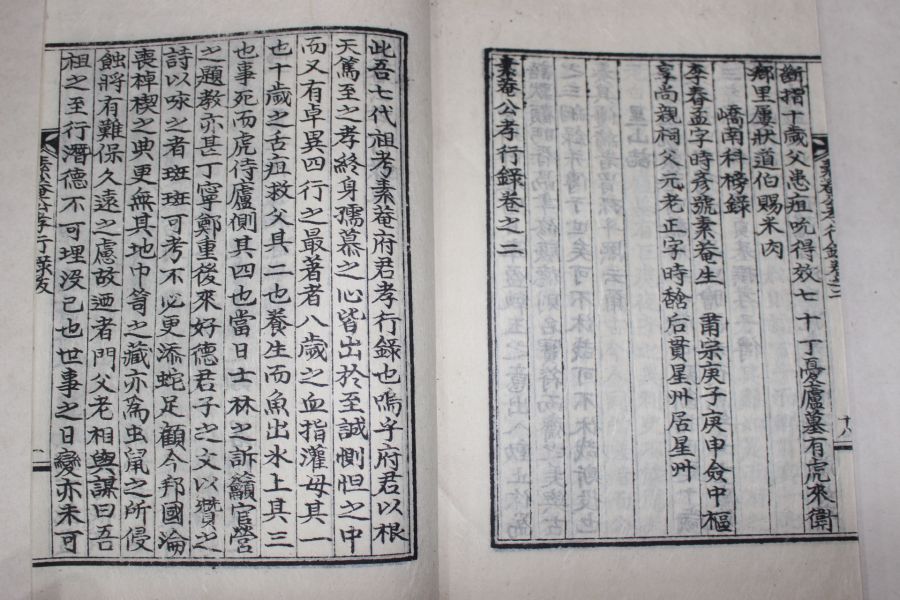 斷指十歲父患疽吮得效七十丁憂廬墓有虎來衛
鄕里屢狀道伯賜米肉
嶠南科榜錄
李春孟字時彥號素菴生 肅宗庚子庚申僉中樞
享尚親祠父元老正字時馣后貫星州居星州
素菴公孝行錄卷之二
此吾七代祖考素菴府君孝行錄也嗚乎府君以根
天篤至之孝終身孺慕之心皆出於至誠惻怛之中
而又有卓異四行之最著者八歲之血指灌母其一
也十歲之舌疽救父其二也養生而魚出氷上其三
也事死而虎待廬側其四也當日士林之訴籲官營
之題敎亦甚丁寧鄭重後來好德君子之文以贊之
詩以咏之者斑斑可考不必更添蛇足顧今邦國淪
喪棹楔之典更無其地巾笥之藏亦爲虫鼠之所侵
蝕將有難保久遠之慮故迺者門父老相與謀曰吾
祖之至行潛德不可埋没已也世事之日變亦未可
素菴公孝行錄卷之二
素菴公孝行錄跋